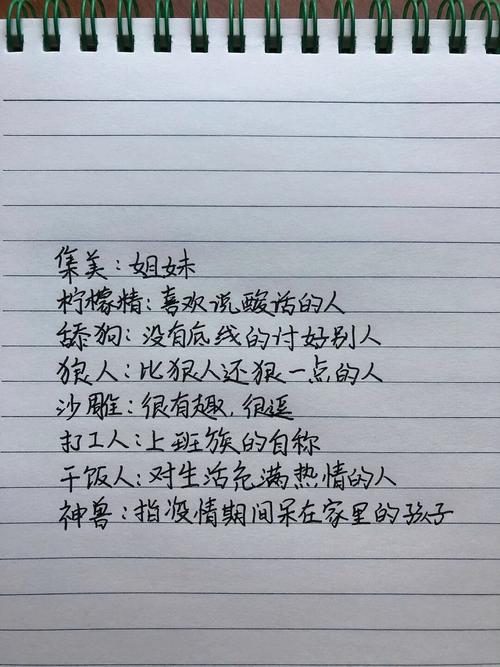 集美：姐妹
柠檬精：喜欢说酸话的人
舔狗：没有底线的讨好别人
狼人：比狠人还狠一点的人
沙雕：很有趣，很逗
打工人：上班族的自称
干饭人：对生活充满热情的人
神兽：指疫情期间呆在家里的孩子